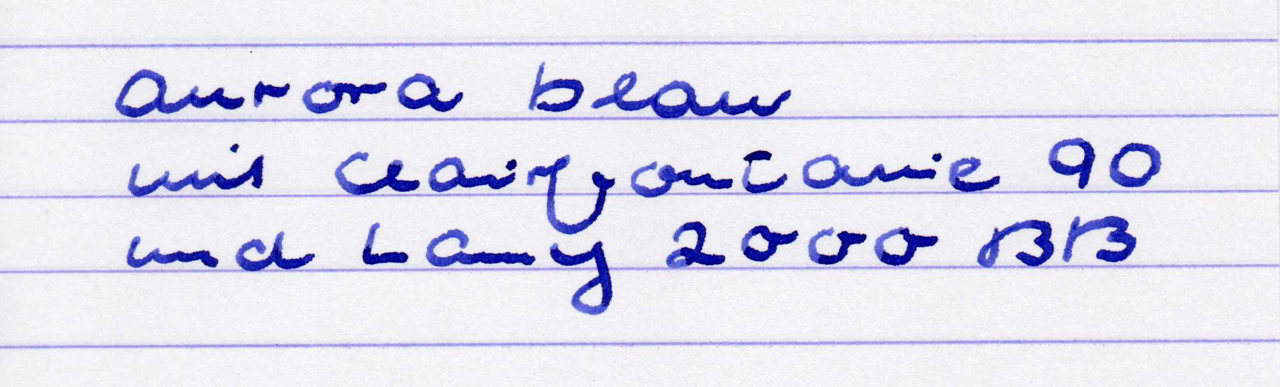 aurora blau
mit clairfontaine 90
und Lamy 2000 BB